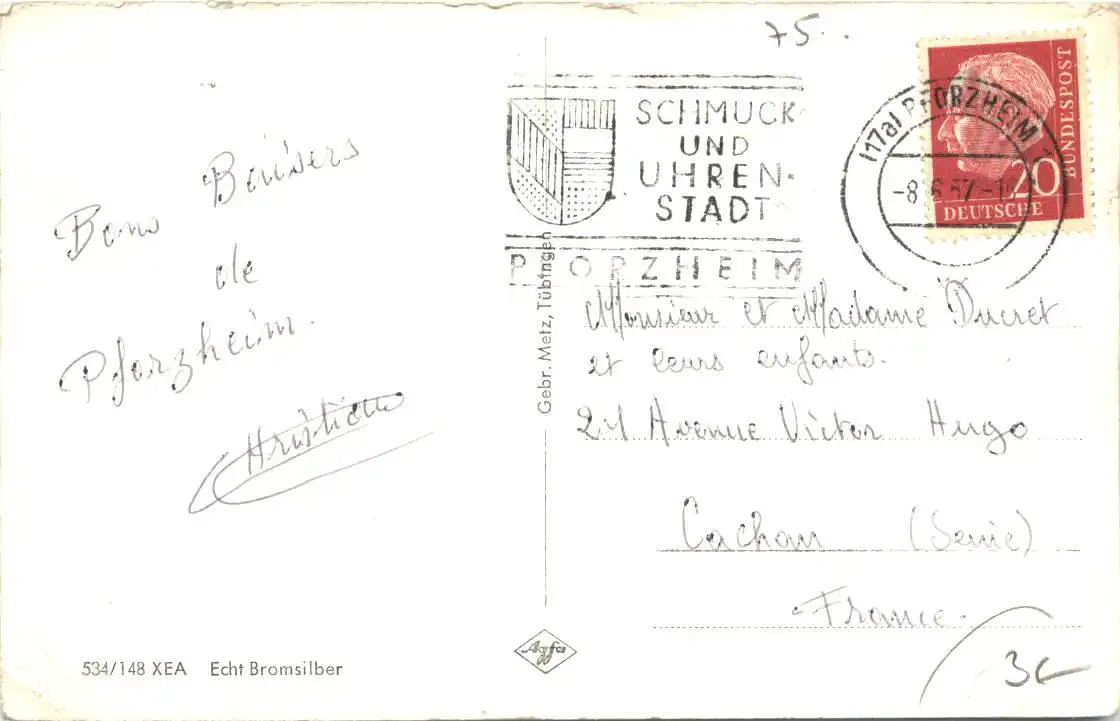 75.
Bons Baisers
de
Pforzheim.
Christiane
534/148 XEA Echt Bromsilber
Gebr. Metz, Tübingen
Agfa
SCHMUCK
UND
UHREN-
STADT
PFORZHEIM
(17a) PFORZHEIM
-8.6.57.-1
20
DEUTSCHE
BUNDESPOST
Monsieur et Madame Ducret
et leurs enfants.
21 Avenue Victor Hugo
Cachan (Seine)
France.
3€